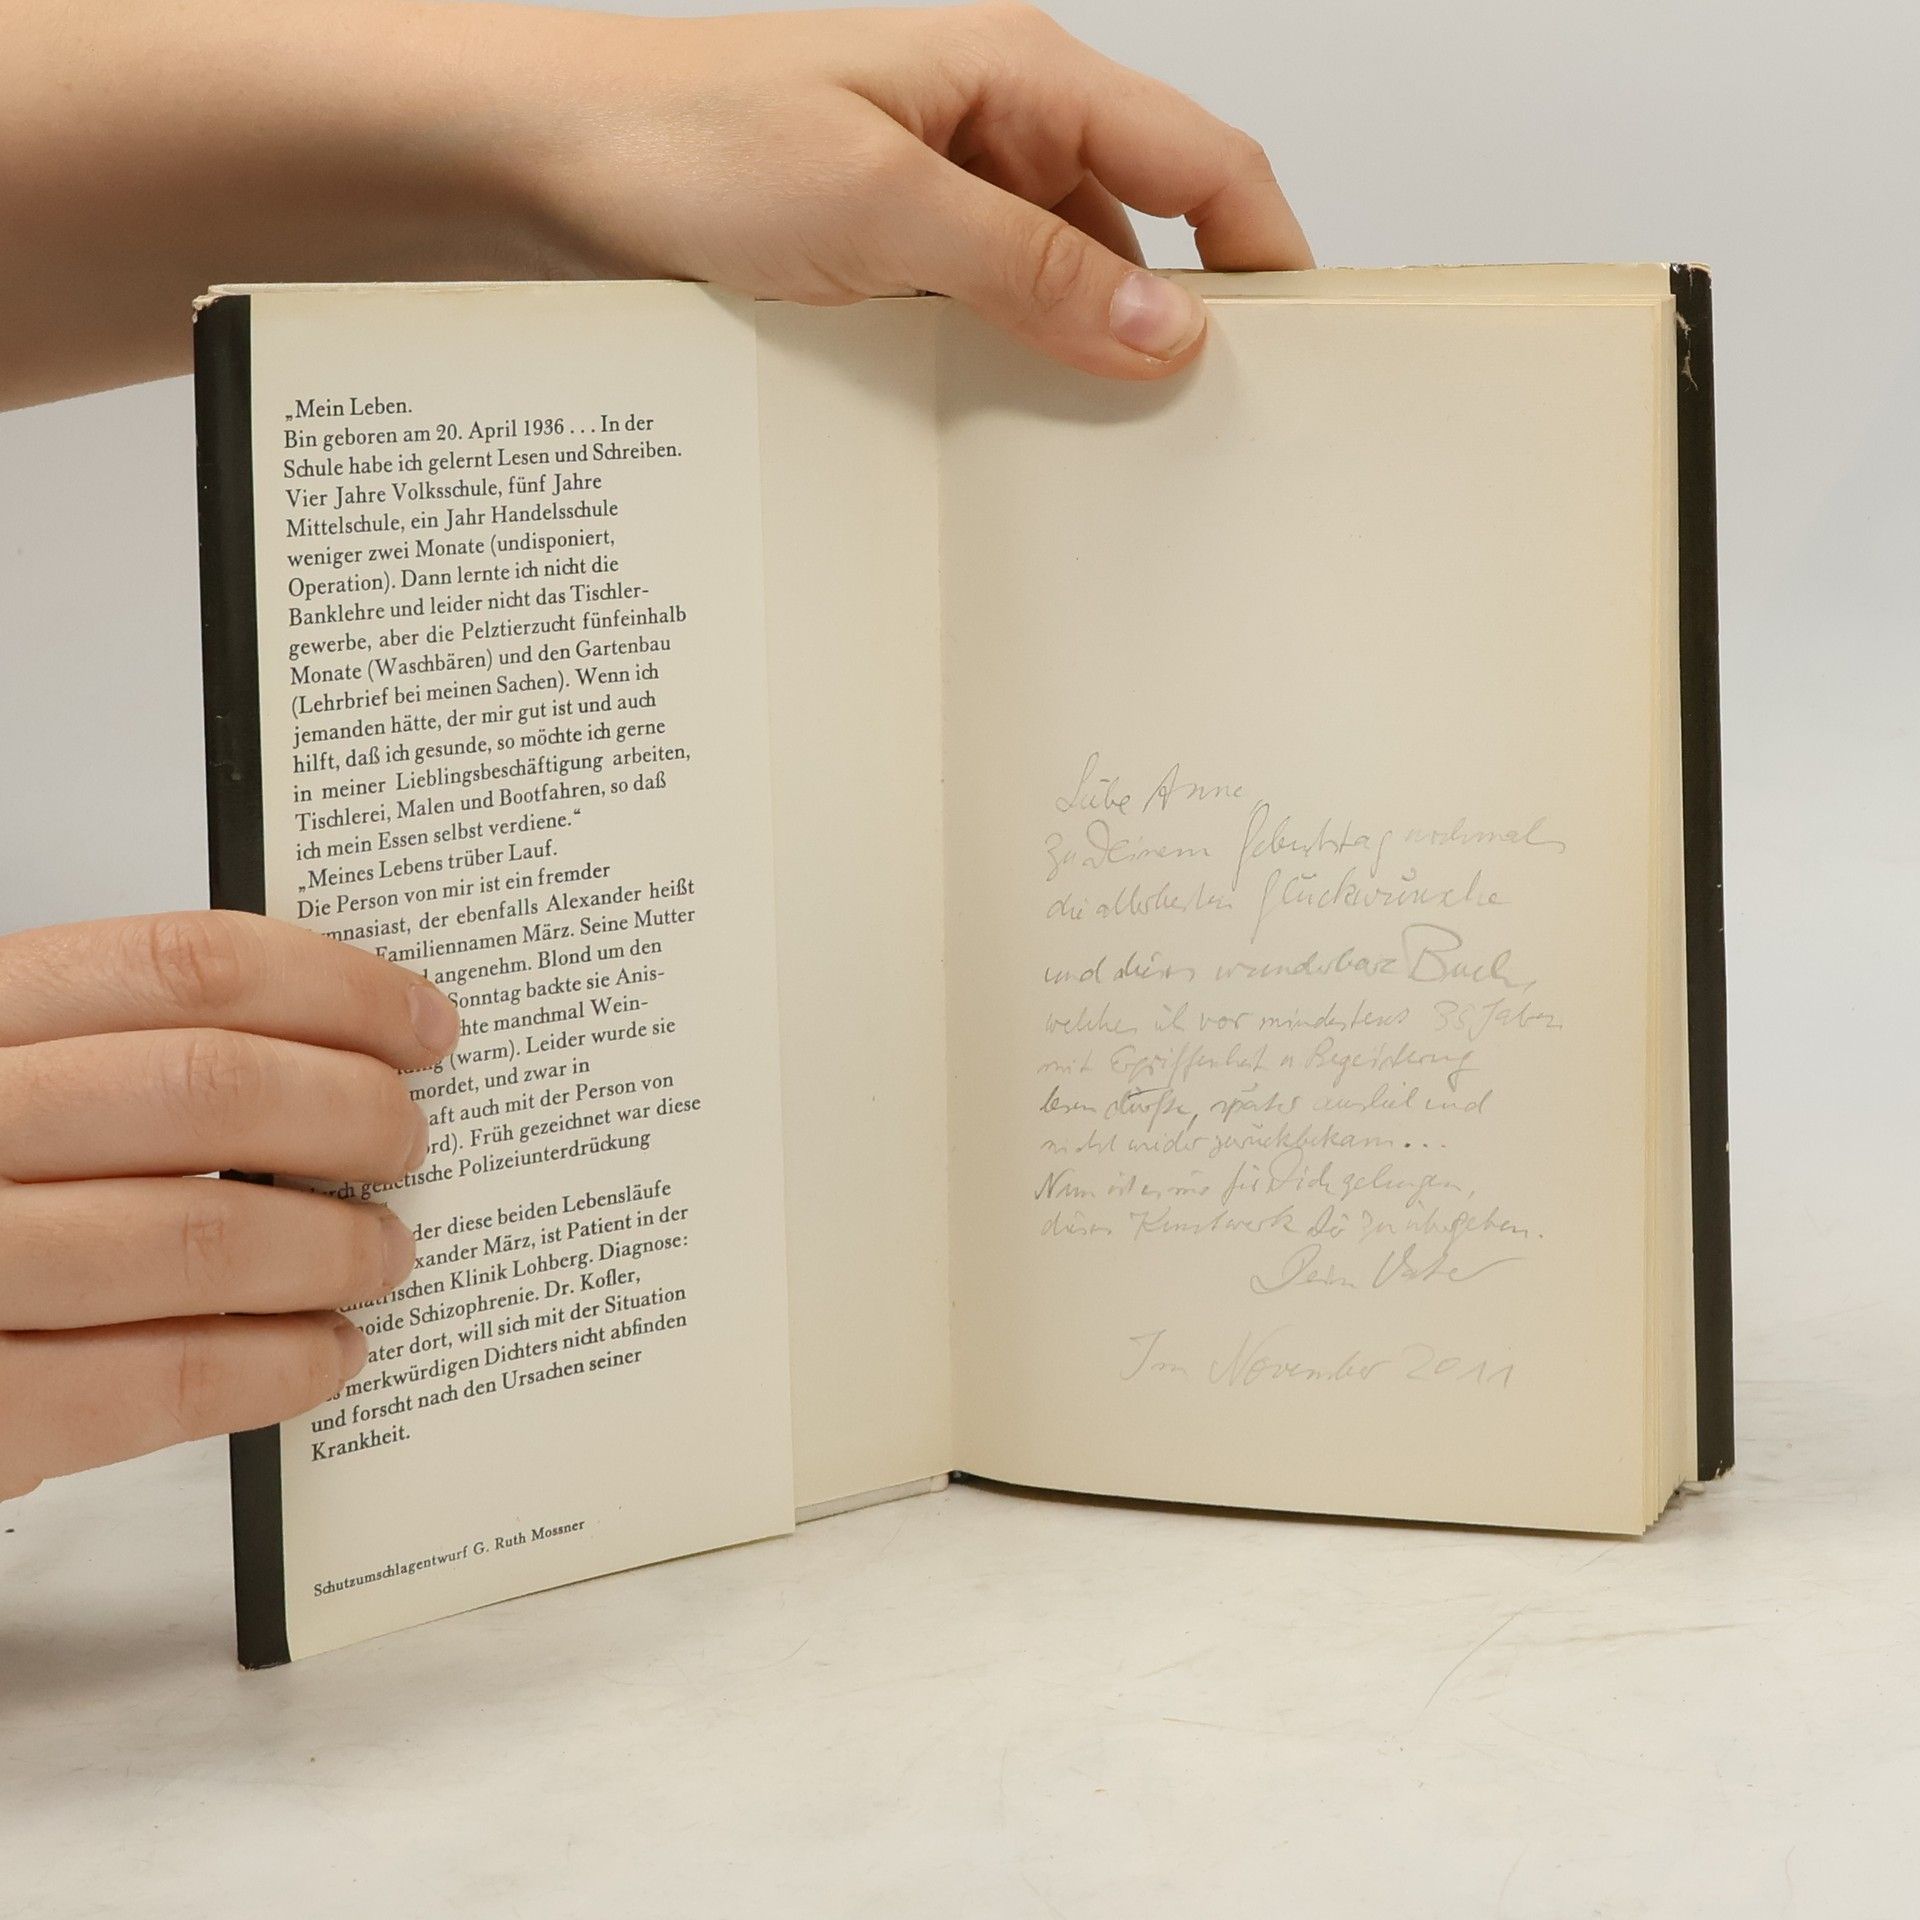 „Mein Leben.
Bin geboren am 20. April 1936 . . . In der
Schule habe ich gelernt Lesen und Schreiben.
Vier Jahre Volksschule, fünf Jahre
Mittelschule, ein Jahr Handelsschule
weniger zwei Monate (undisponiert,
Operation). Dann lernte ich nicht die
Banklehre und leider nicht das Tischler-
gewerbe, aber die Pelztierzucht fünfeinhalb
Monate (Waschbären) und den Gartenbau
(Lehrbrief bei meinen Sachen). Wenn ich
jemanden hätte, der mir gut ist und auch
hilft, daß ich gesunde, so möchte ich gerne
in meiner Lieblingsbeschäftigung arbeiten,
Tischlerei, Malen und Bootfahren, so daß
ich mein Essen selbst verdiene.“
„Meines Lebens trüber Lauf.
Die Person von mir ist ein fremder
mnasiast, der ebenfalls Alexander heißt
Familiennamen März. Seine Mutter
angenehm. Blond um den
Sonntag backte sie Anis-
hte manchmal Wein-
(warm). Leider wurde sie
mordet, und zwar in
aft auch mit der Person von
ord). Früh gezeichnet war diese
durch genetische Polizeiunterdrückung
der diese beiden Lebensläufe
xander März, ist Patient in der
ischen Klinik Lohberg. Diagnose:
noide Schizophrenie. Dr. Kofler,
ater dort, will sich mit der Situation
merkwürdigen Dichters nicht abfinden
und forscht nach den Ursachen seiner
Krankheit.
Schutzumschlagentwurf G. Ruth Mossner
Liebe Anne,
zu Deinem Geburtstag nochmals
die allerbesten Glückwünsche
und dieses wunderbare Buch,
welches ich vor mindestens 35 Jahren
mit Ergriffenheit u Begeisterung
lesen durfte, später auslieh und
nicht wieder zurückbekam...
Nun ist es mir für Dich gelungen,
dieses Kunstwerk Dir zu übergeben.
Dein Vater
Im November 2011